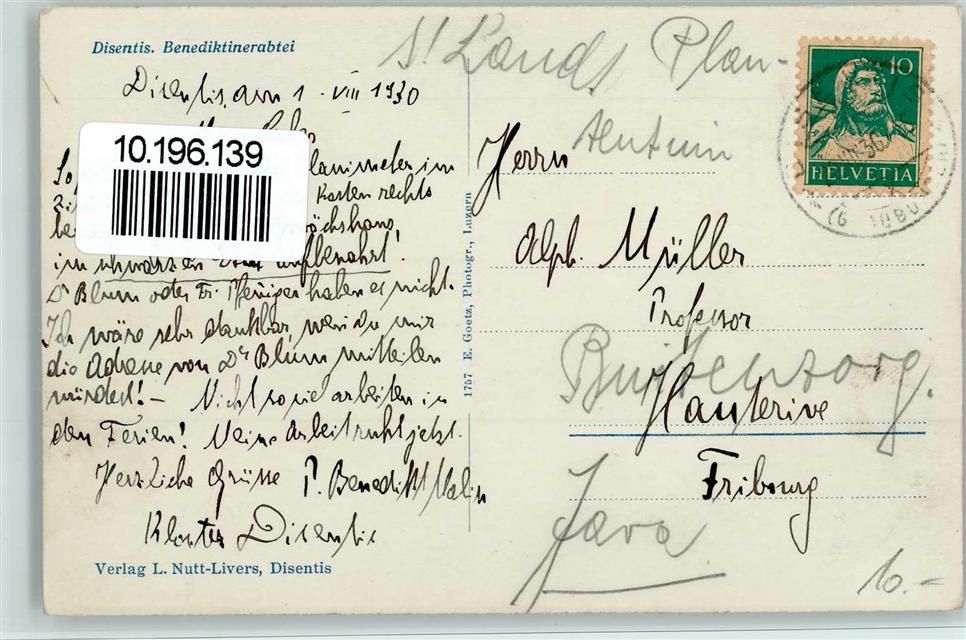 Disentis. Benediktinerabtei
Disentis, am 1. VIII 1930
10.196.139
Planimeter im
Kasten rechts
im schwarzen aufbewahrt!
Dr Blum oder Fr. haben es nicht.
Ich wäre sehr dankbar, wenn du mir
die Adresse von Dr Blum mitteilen
würdest! – Nicht so viel arbeiten in
den Ferien! Meine Arbeit ruht jetzt.
Herzliche Grüsse P. Benedikt
Kloster Disentis
Verlag L. Nutt-Livers, Disentis
1757 E. Goetz, Photogr., Luzern
S'Lands Plan-
tentuin
Buitenzorg.
Java
Herrn
Alph. Müller
Professor
Hauterive
Fribourg
10
HELVETIA
10.-